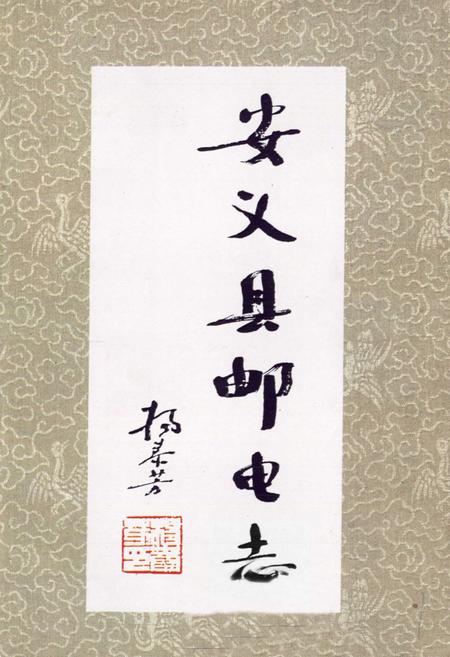 安义县邮电志
杨泰芳